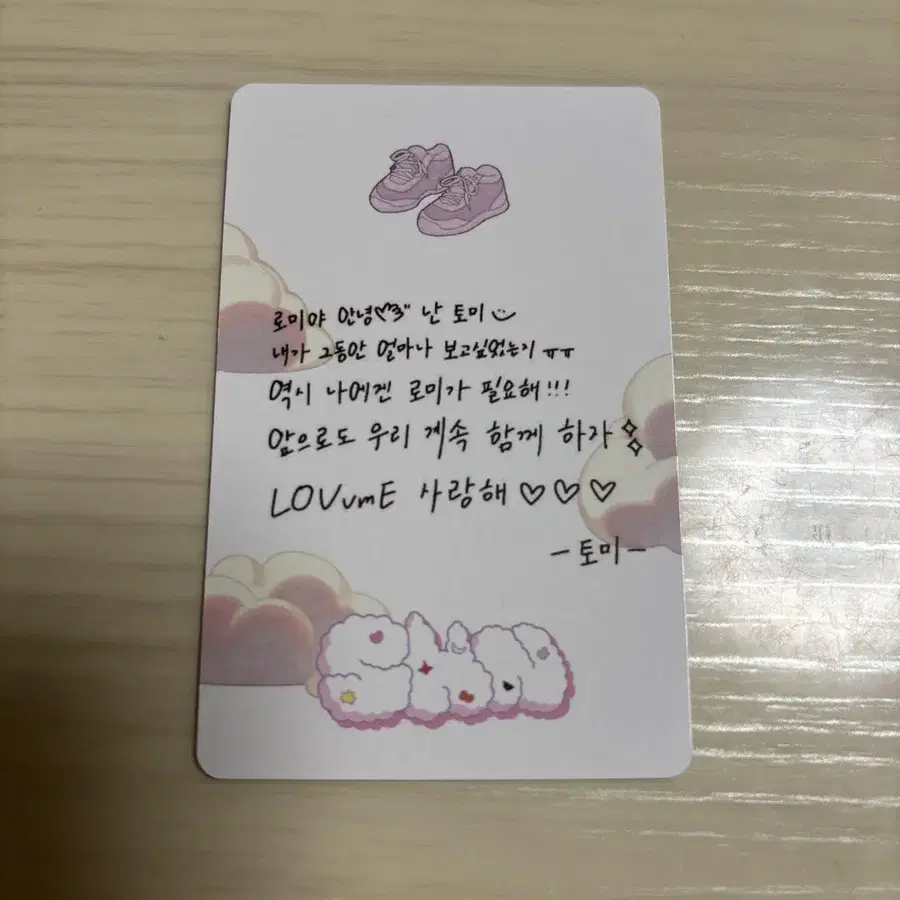 로미야 안녕♡ 난 토미
내가 그동안 얼마나 보고싶었는지 ㅠㅠ
역시 나에겐 로미가 필요해!!!
앞으로도 우리 계속 함께 하자
LOVumE 사랑해 ♡♡♡
-토미-